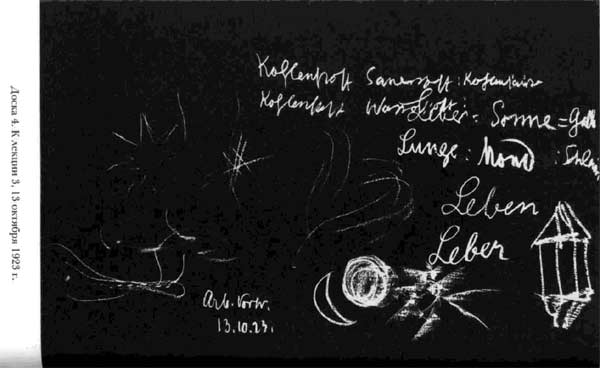 Доска 4. К лекции 3, 13 октября 1923 г.
Kohlenstoff Sauerstoff: Kohlensäure
Kohlenstoff Wasserstoff:
Leber: Sonne = Galle
Lunge: Mond : Schleim
Leben
Leber
Arb. Vortr.
13.10.23.